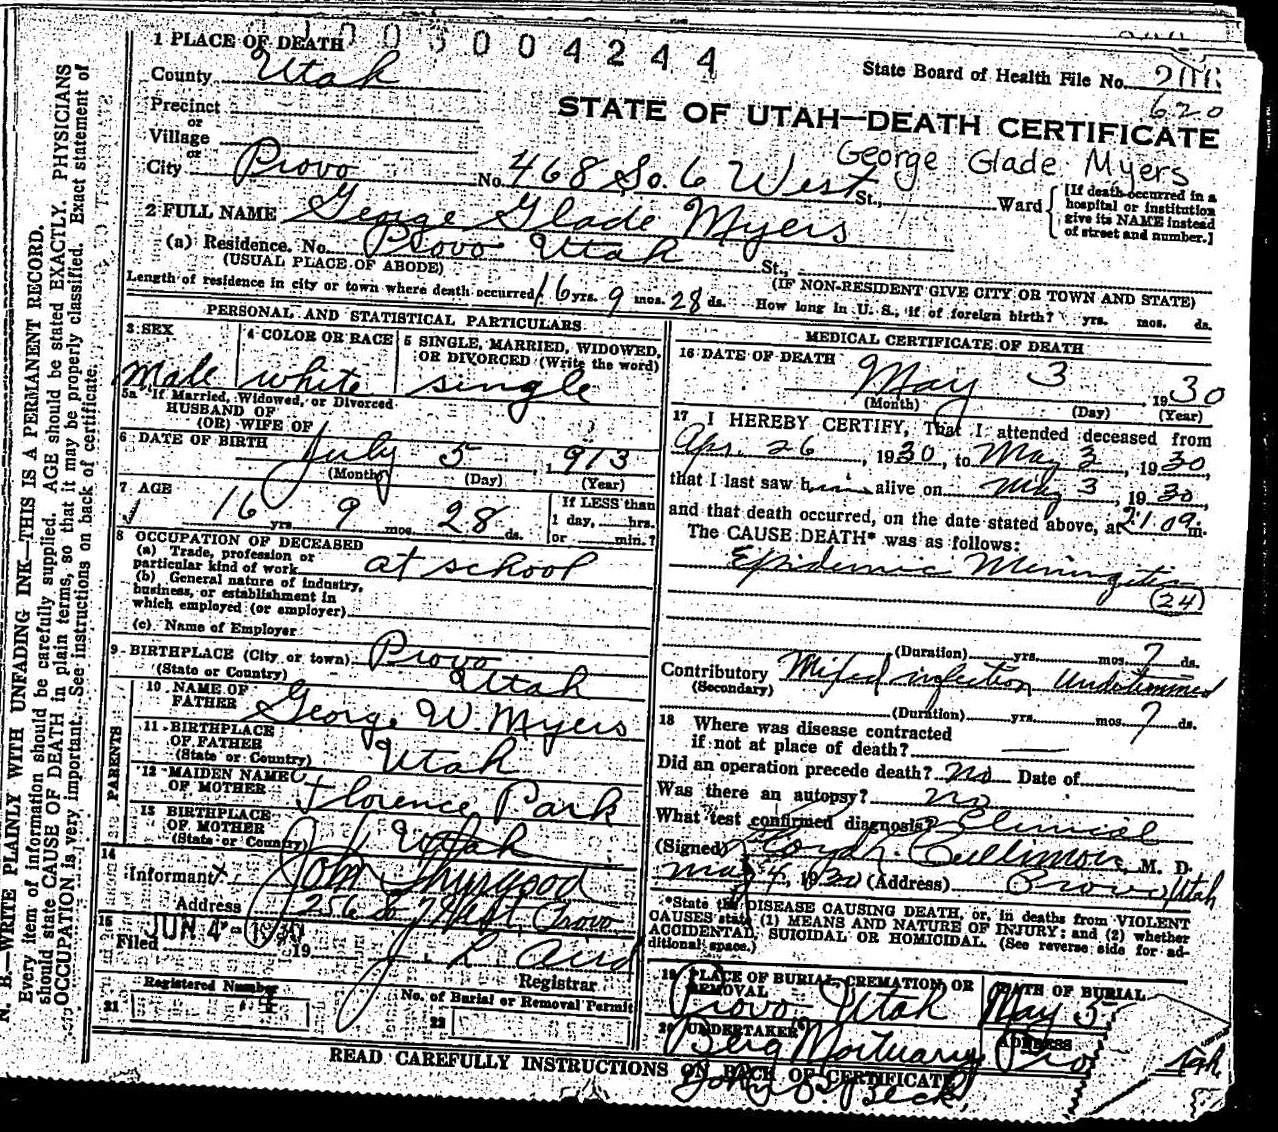 1 PLACE OF DEATH
003004244
County Utah
State Board of Health File No.
620
Precinct
or
Village
or
STATE OF UTAH—DEATH CERTIFICATE
George Glade Myers
City Provo No. 468 So. 6 West St., Ward
[If death occurred in a hospital or institution give its NAME instead of street and number.]
2 FULL NAME George Glade Myers
(a) Residence. No. Provo Utah St.,
(USUAL PLACE OF ABODE) (IF NON-RESIDENT GIVE CITY OR TOWN AND STATE)
Length of residence in city or town where death occurred 16 yrs. 9 mos. 28 ds. How long in U. S., if of foreign birth? yrs. mos. ds.
PERSONAL AND STATISTICAL PARTICULARS
3 SEX
Male
4 COLOR OR RACE
white
5 SINGLE, MARRIED, WIDOWED, OR DIVORCED (Write the word)
single
5a If Married, Widowed, or Divorced
HUSBAND OF
(OR) WIFE OF
6 DATE OF BIRTH July 5, 1913
(Month) (Day) (Year)
7 AGE
16 yrs. 9 mos. 28 ds.
If LESS than
1 day, hrs.
or min.?
8 OCCUPATION OF DECEASED
(a) Trade, profession or
particular kind of work at school
(b) General nature of industry,
business, or establishment in
which employed (or employer)
(c) Name of Employer
9 BIRTHPLACE (City or town) Provo
(State or Country) Utah
PARENTS
10 NAME OF
FATHER George W. Myers
11 BIRTHPLACE
OF FATHER
(State or Country) Utah
12 MAIDEN NAME
OF MOTHER Florence Park
13 BIRTHPLACE
OF MOTHER
(State or Country) Utah
14
Informant John Thurgood
Address 256 So 7 West, Provo
15
Filed JUN 4 1930 19
Registrar
Registered Number
No. of Burial or Removal Permit
21
22
MEDICAL CERTIFICATE OF DEATH
16 DATE OF DEATH
May 3 1930
(Month) (Day) (Year)
17 I HEREBY CERTIFY, That I attended deceased from
Apr. 26, 1930, to May 3, 1930,
that I last saw him alive on May 3, 1930,
and that death occurred, on the date stated above, at m.
The CAUSE DEATH* was as follows:
Epidemic Meningitis
(24)
(Duration) yrs. mos. 7 ds.
Contributory Mixed infection Undetermined
(Secondary)
(Duration) yrs. mos. 7 ds.
18 Where was disease contracted
if not at place of death?
Did an operation precede death? no Date of
Was there an autopsy? no
What test confirmed diagnosis? Clinical
(Signed) Cullimore, M. D.
May 4, 1930 (Address) Provo Utah
*State the DISEASE CAUSING DEATH, or, in deaths from VIOLENT
CAUSES state (1) MEANS AND NATURE OF INJURY; and (2) whether
ACCIDENTAL, SUICIDAL OR HOMICIDAL. (See reverse side for ad-
ditional space.)
19 PLACE OF BURIAL, CREMATION OR
REMOVAL
Provo, Utah
DATE OF BURIAL
May 5
20 UNDERTAKER
Berg Mortuary
ADDRESS
READ CAREFULLY INSTRUCTIONS ON BACK OF CERTIFICATE
N. B.—WRITE PLAINLY WITH UNFADING INK—THIS IS A PERMANENT RECORD.
Every item of information should be carefully supplied. AGE should be stated EXACTLY. PHYSICIANS
should state CAUSE OF DEATH in plain terms, so that it may be properly classified. Exact statement of
OCCUPATION is very important. See instructions on back of certificate.